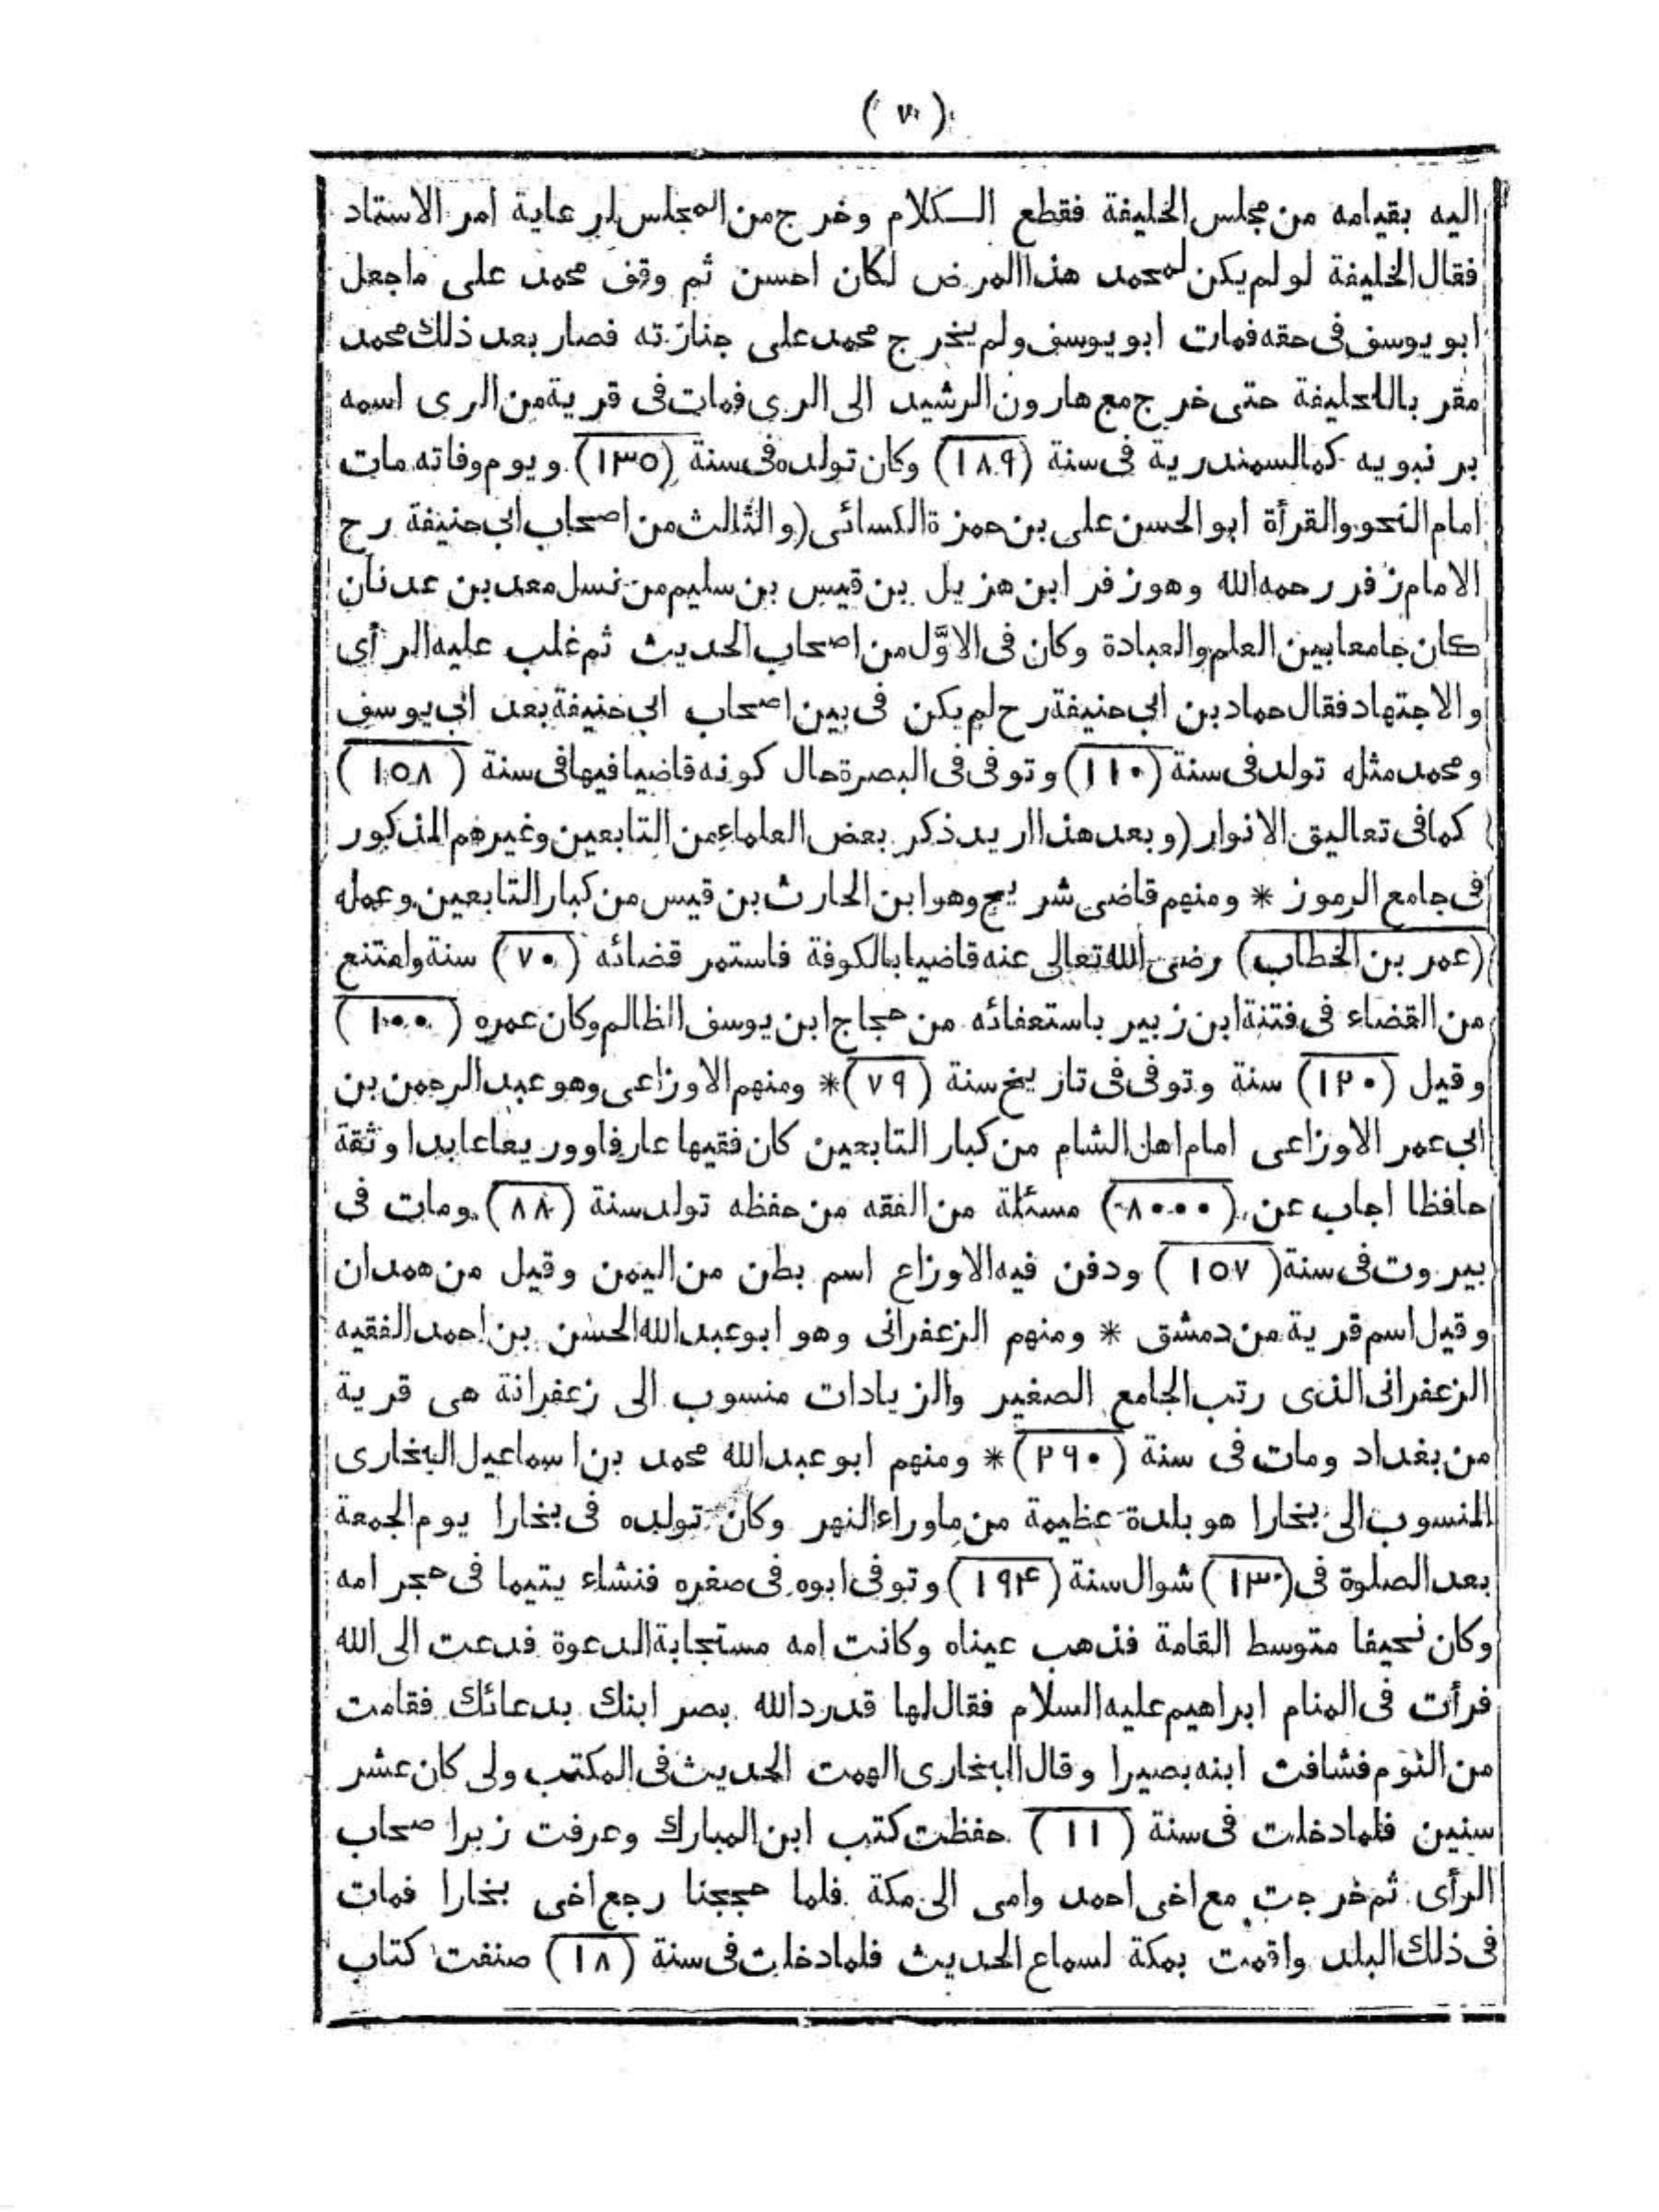 (٧)
اليه بقيامه من مجلس الخليفة فقطع الكلام وخرج من المجلس لرعاية امر الاستاد
فقال الخليفة لو لم يكن لمحمد هذا المرض لكان احسن ثم وقف محمد على ما جعل
ابو يوسف فى حقه فمات ابو يوسف ولم يخرج محمد على جنازته فصار بعد ذلك محمد
مقر بالخليفة حتى خرج مع هارون الرشيد الى الرى فمات فى قرية من الرى اسمه
بر نبويه كما السمندرية فى سنة (١٨٩) وكان تولده فى سنة (١٣٥) ويوم وفاته مات
امام النحو والقرأة ابو الحسن على بن حمزة الكسائى (والثالث من اصحاب ابى حنيفة رح
الامام زفر رحمه الله وهو زفر ابن هزيل بن قيس بن سليم من نسل معد بن عدنان
كان جامعا بين العلم والعبادة وكان فى الاوّل من اصحاب الحديث ثم غلب عليه الرأى
والاجتهاد فقال حماد بن ابى حنيفة رح لم يكن فى بين اصحاب ابى حنيفة بعد ابى يوسف
ومحمد مثله تولد فى سنة (١١٠) وتوفى فى البصرة حال كونه قاضيا فيها فى سنة (١٥٨)
كما فى تعاليق الانوار (وبعد هذا اريد ذكر بعض العلماء من التابعين وغيرهم المذكور
فى جامع الرموز * ومنهم قاضى شريح وهو ابن الحارث بن قيس من كبار التابعين وعمله
(عمر بن الخطاب) رضى الله تعالى عنه قاضيا بالكوفة فاستمر قضائه (٧٠) سنة وامتنع
من القضاء فى فتنة ابن زبير باستعفائه من حجاج ابن يوسف الظالم وكان عمره (١٠٠)
وقيل (١٢٠) سنة وتوفى فى تاريخ سنة (٧٩) * ومنهم الاوزاعى وهو عبد الرحمن بن
ابى عمر الاوزاعى امام اهل الشام من كبار التابعين كان فقيها عارفا وور يعا عابدا وثقة
حافظا اجاب عن (٨٠٠٠) مسئلة من الفقه من حفظه تولد سنة (٨٨) ومات فى
بيروت فى سنة (١٥٧) ودفن فيه الاوزاع اسم بطن من اليمن وقيل من همدان
وقيل اسم قرية من دمشق * ومنهم الزعفرانى وهو ابو عبد الله الحسن بن احمد الفقيه
الزعفرانى الذى رتب الجامع الصغير والزيادات منسوب الى زعفرانة هى قرية
من بغداد ومات فى سنة (٢٦٠) * ومنهم ابو عبد الله محمد بن اسماعيل البخارى
المنسوب الى بخارا هو بلدة عظيمة من ماوراء النهر وكان تولده فى بخارا يوم الجمعة
بعد الصلوة فى (١٣) شوال سنة (١٩٤) وتوفى ابوه فى صغره فنشاء يتيما فى حجر امه
وكان نحيفا متوسط القامة فذهب عيناه وكانت امه مستجابة الدعوة فدعت الى الله
فرأت فى المنام ابراهيم عليه السلام فقال لها قد رد الله بصر ابنك بدعائك فقامت
من النوم فشافت ابنه بصيرا وقال البخارى الهمت الحديث فى المكتب ولى كان عشر
سنين فلما دخلت فى سنة (١١) حفظت كتب ابن المبارك وعرفت زبر اصحاب
الرأى ثم خرجت مع اخى احمد وامى الى مكة فلما حججنا رجع اخى بخارا فمات
فى ذلك البلد واقمت بمكة لسماع الحديث فلما دخلت فى سنة (١٨) صنفت كتاب